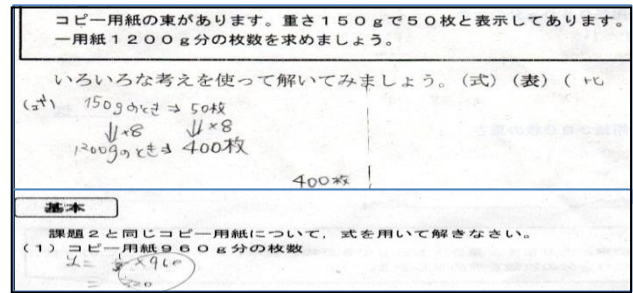 コピー用紙の束があります。重さ150gで50枚と表示してあります。
ー用紙1200g分の枚数を求めましょう。
いろいろな考えを使って解いてみましょう。(式)(表)(
150gのとき⇒50枚
↓×8 ↓×8
1200gのとき⇒400枚
400枚
基本
課題2と同じコピー用紙について,式を用いて解きなさい。
(1)コピー用紙960g分の枚数
×960
= 320